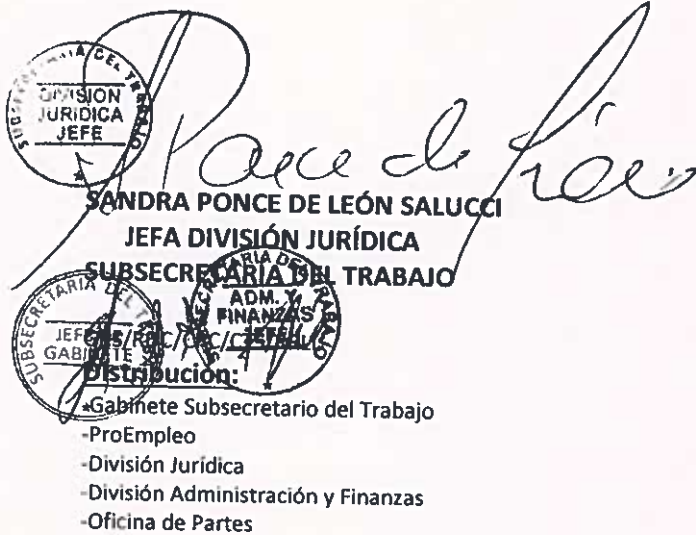 SUBSECRETARIA DEL TRABAJO
DIVISION
JURIDICA
JEFE
Ponce de León
SANDRA PONCE DE LEÓN SALUCCI
JEFA DIVISIÓN JURÍDICA
SUBSECRETARIA DEL TRABAJO
SUBSECRETARIA DEL
JEFE
GABINETE
SECRETARIA DEL TRABAJO
ADM. Y
FINANZAS
JEFE
Distribución:
-Gabinete Subsecretario del Trabajo
-ProEmpleo
-División Jurídica
-División Administración y Finanzas
-Oficina de Partes